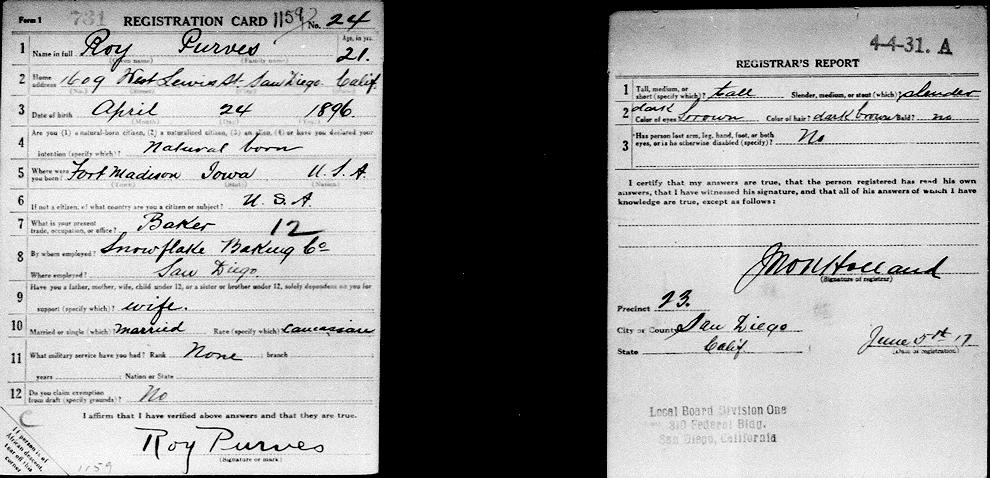 Form 1 731 REGISTRATION CARD 1159 No. 24
1 Name in full Roy Purves Age, in yrs. 21.
(Given name) (Family name)
2 Home address 1609 West Lewis St. San Diego Calif.
(No.) (Street) (City) (State)
3 Date of birth April 24 1896.
(Month) (Day) (Year)
4 Are you (1) a natural-born citizen, (2) a naturalized citizen, (3) an alien, (4) or have you declared your
intention (specify which)? Natural born
5 Where were you born? Fort Madison Iowa U.S.A.
(Town) (State) (Nation)
6 If not a citizen, of what country are you a citizen or subject? U.S.A.
7 What is your present trade, occupation, or office? Baker 12
8 By whom employed? Snowflake Baking Co
Where employed? San Diego.
9 Have you a father, mother, wife, child under 12, or a sister or brother under 12, solely dependent on you for
support (specify which)? wife.
10 Married or single (which)? married Race (specify which)? Caucasian
11 What military service have you had? Rank None ; branch
years ; Nation or State
12 Do you claim exemption from draft (specify grounds)? No
I affirm that I have verified above answers and that they are true.
Roy Purves
(Signature or mark)
C
If person is of
African descent,
tear off this
corner
1159
4-4-31. A
REGISTRAR'S REPORT
1 Tall, medium, or short (specify which)? tall Slender, medium, or stout (which)? slender
2 Color of eyes? dark brown Color of hair? dark brown Bald? no
3 Has person lost arm, leg, hand, foot, or both eyes, or is he otherwise disabled (specify)? No
I certify that my answers are true, that the person registered has read his own
answers, that I have witnessed his signature, and that all of his answers of which I have
knowledge are true, except as follows:
Holland
(Signature of registrar)
Precinct 23.
City or County San Diego
State Calif. June 5th 17
(Date of registration)
Local Board Division One
310 Federal Bldg.
San Diego, California